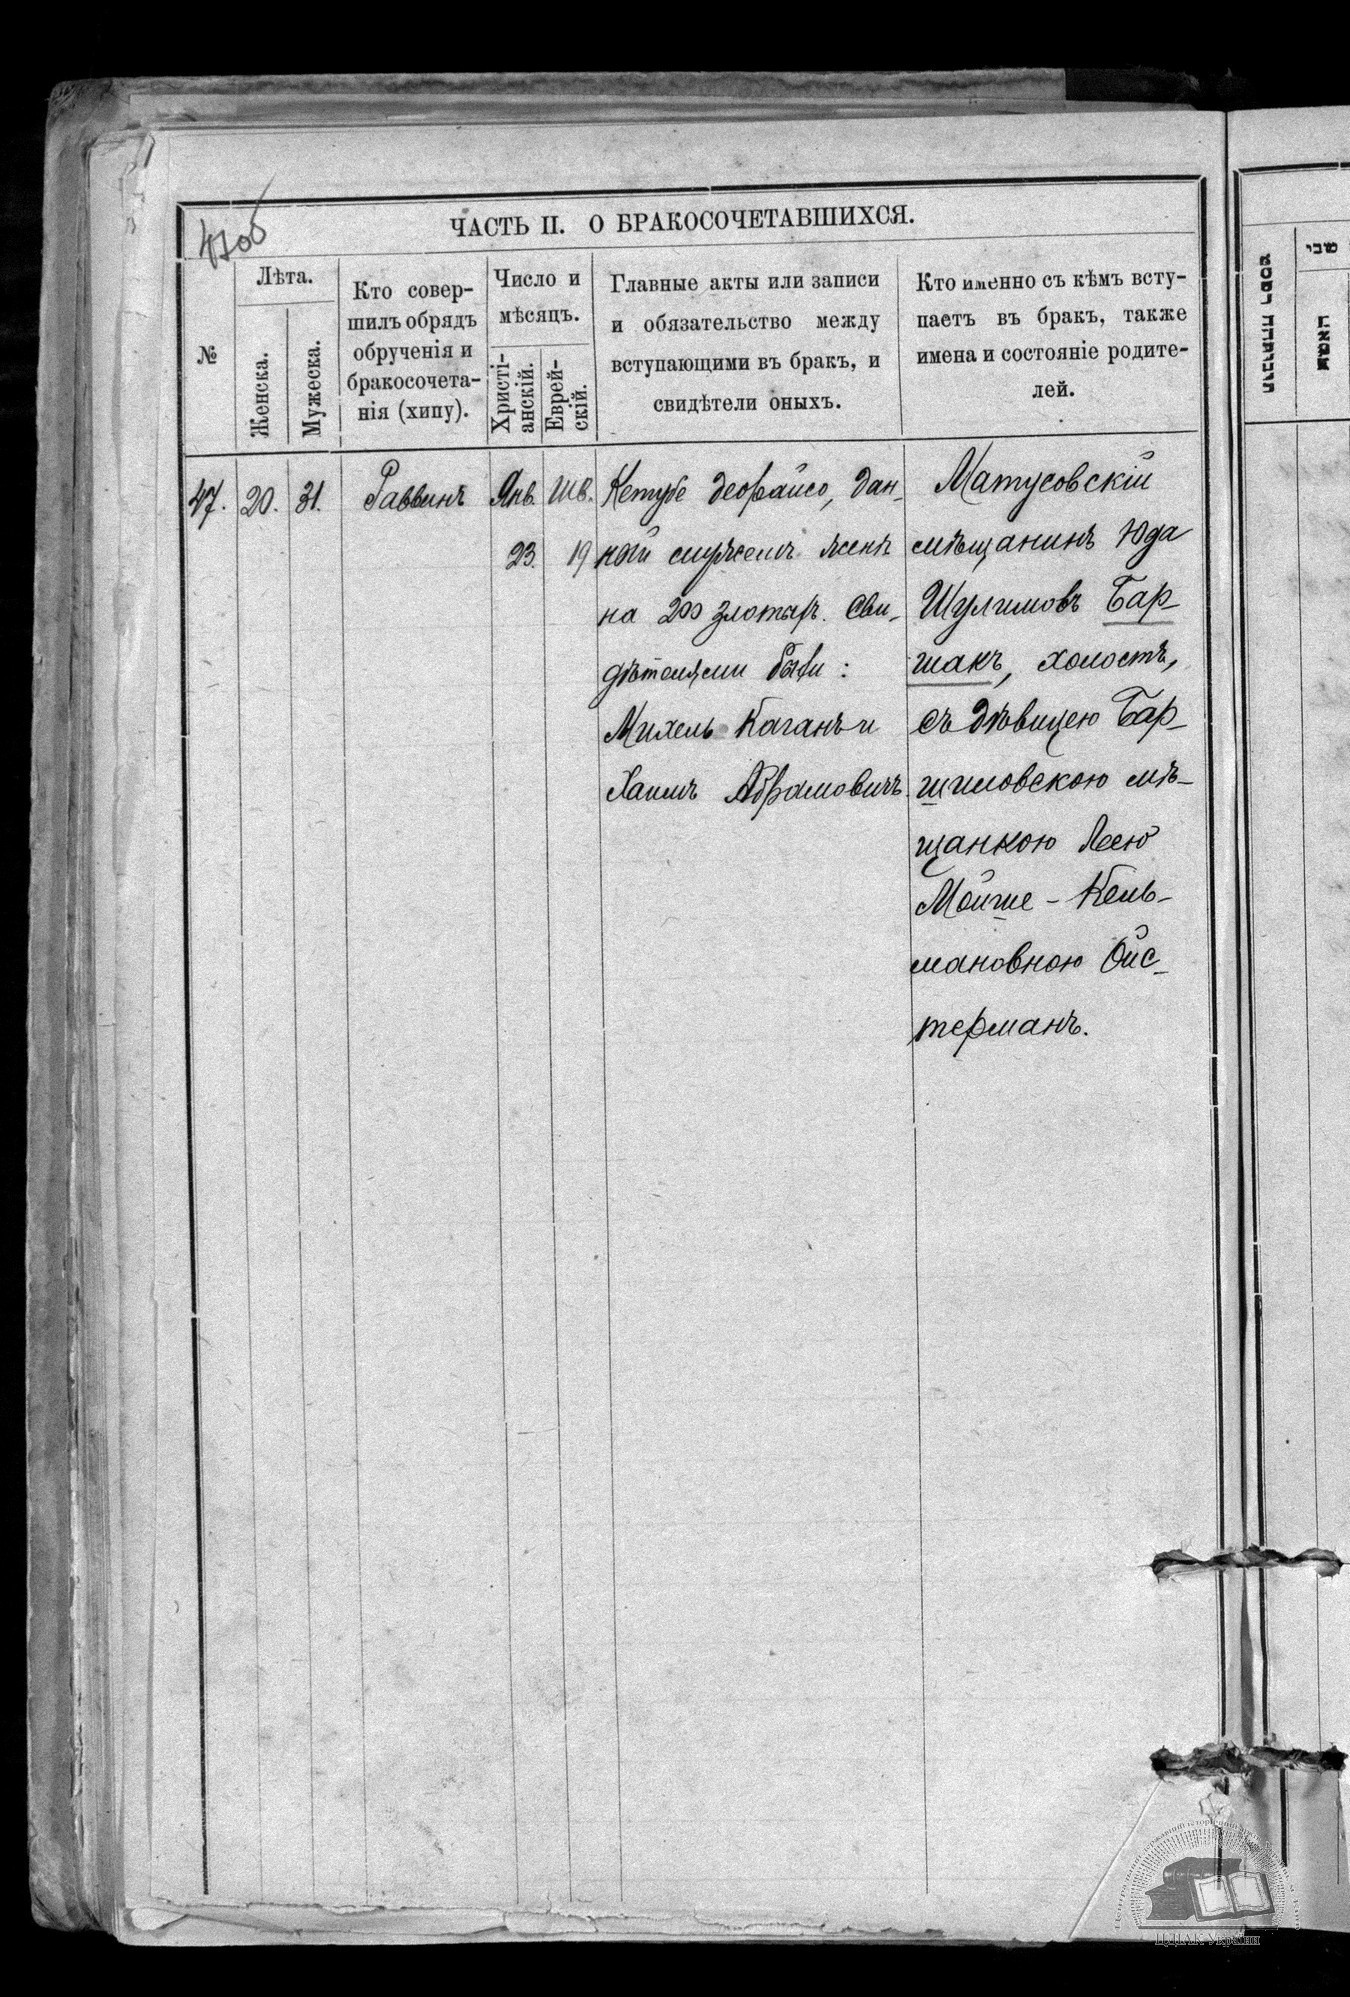 470б
ЧАСТЬ II. О БРАКОСОЧЕТАВШИХСЯ.
№
Лѣта.
Женска.
Мужеска.
Кто совер-
шилъ обрядъ
обрученія и
бракосочета-
нія (хипу).
Число и
мѣсяцъ.
Христі-
анскій.
Еврей-
скій.
Главные акты или записи
и обязательство между
вступающими въ бракъ, и
свидѣтели оныхъ.
Кто именно съ кѣмъ всту-
паетъ въ бракъ, также
имена и состояніе родите-
лей.
47.
20.
31.
Раввинъ
Янв.
23.
Шв.
19
Кетубе деорайсо, дан-
ной мужемъ женѣ
на 200 злотыхъ. Сви-
дѣтелями были:
Михель Каганъ и
Хаимъ Абрамовичъ.
Матусовскій
мѣщанинъ Юда
Шулимовъ Бар-
шакъ, холостъ,
съ дѣвицею Бар-
шиловскою мѣ-
щанкою Леею
Мойше-Кель-
мановною Ойс-
терманъ.
ЦДІАК України